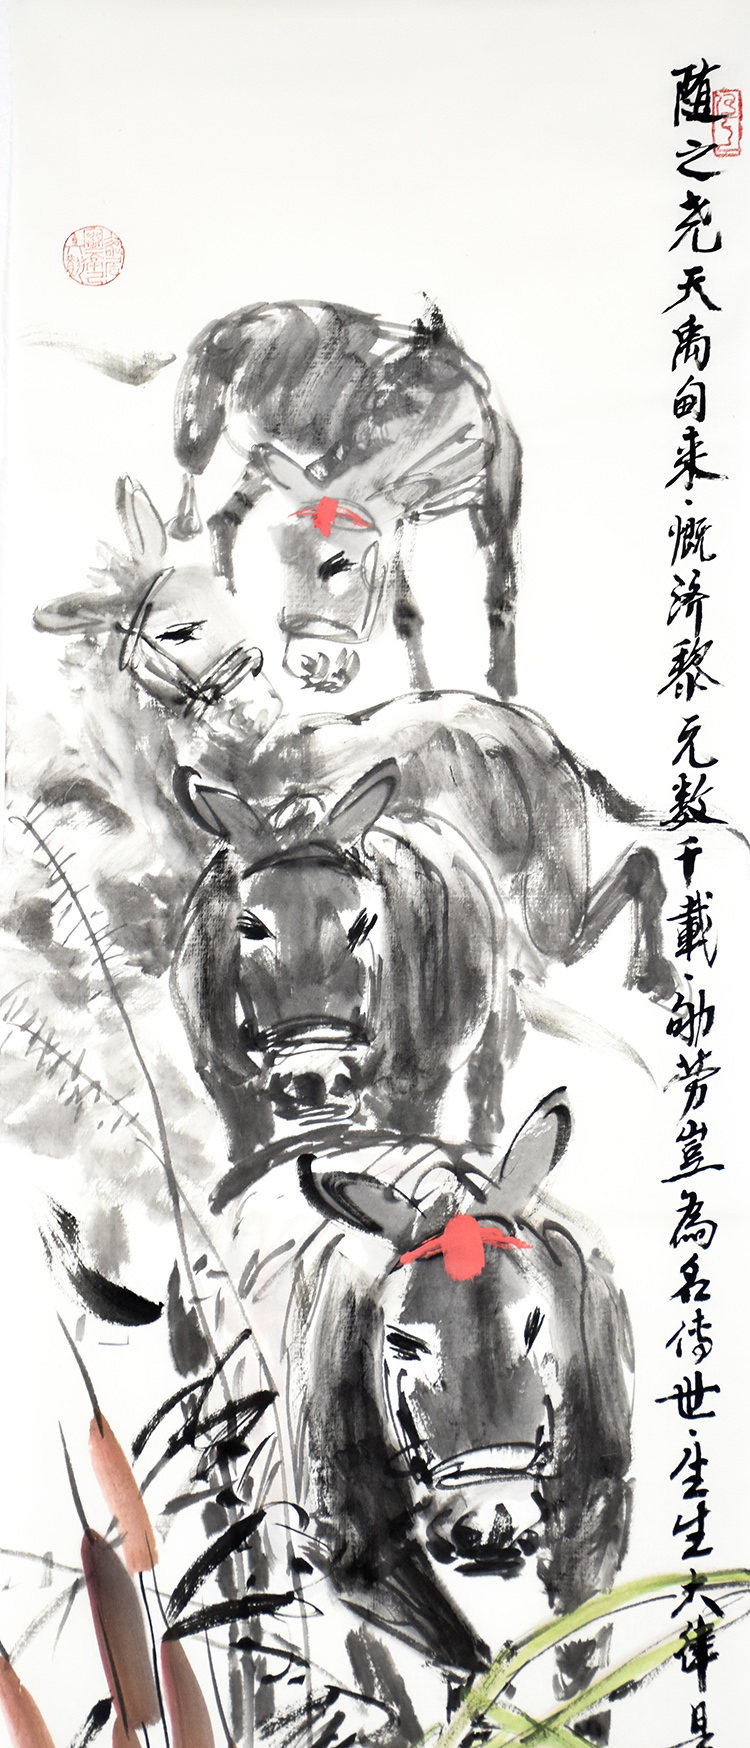 随之尧天禹甸来、慨济黎元数千载、劬劳岂为名传世、坐生大律是